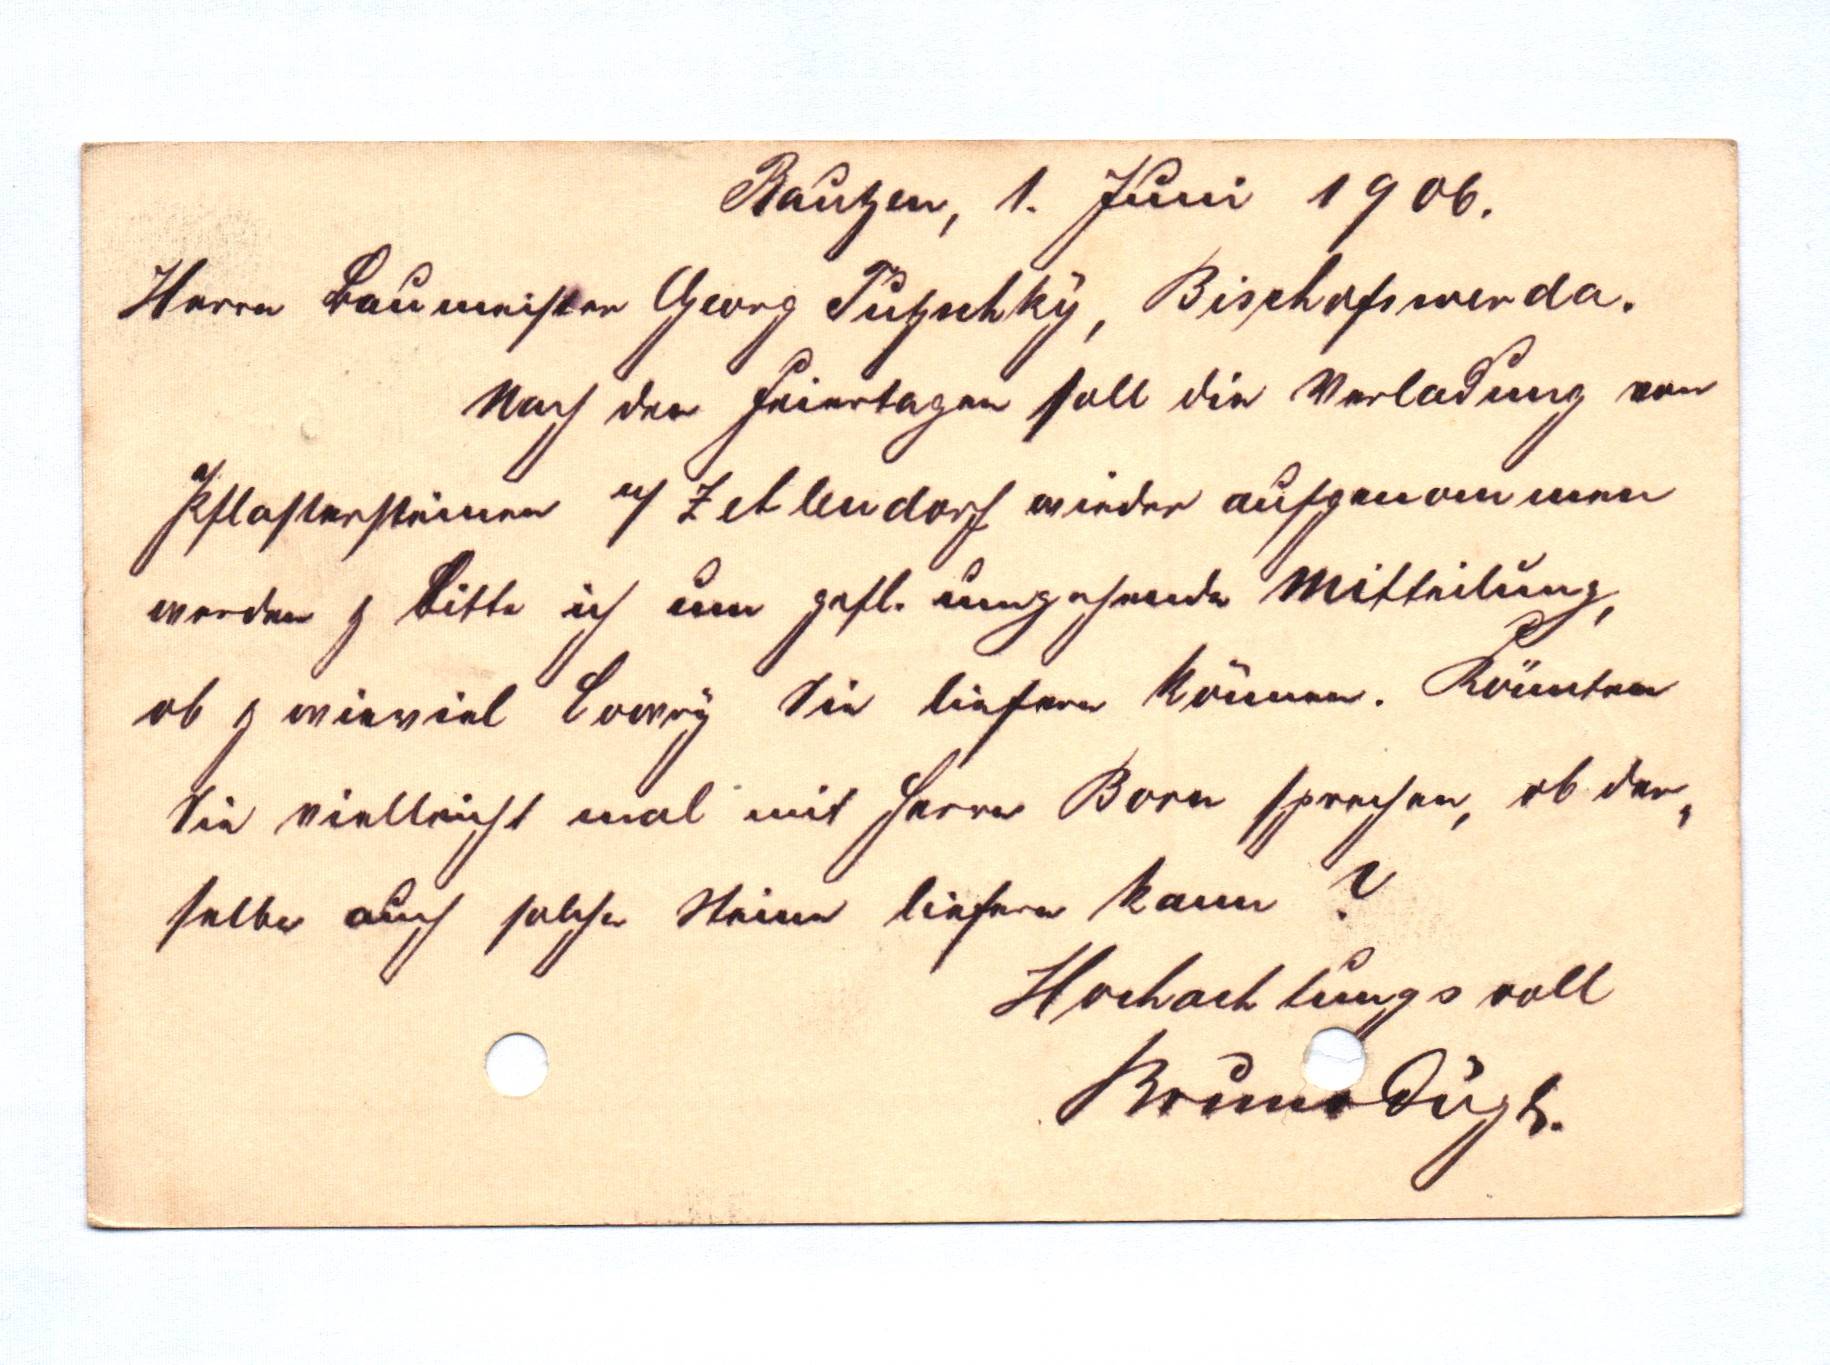 Bautzen, 1. Juni 1906.
Herrn Baumeister Georg Tuschky, Bischofswerda.
Nach den Feiertagen soll die Verladung von
Pflastersteinen n/ Zehlendorf wieder aufgenommen
werden & bitte ich um gefl. umgehende Mitteilung,
ob & wieviel Lowry Sie liefern können. Könnten
Sie vielleicht mal mit Herrn Born sprechen, ob der-
selbe auch solche Steine liefern kann?
Hochachtungsvoll
Bruno